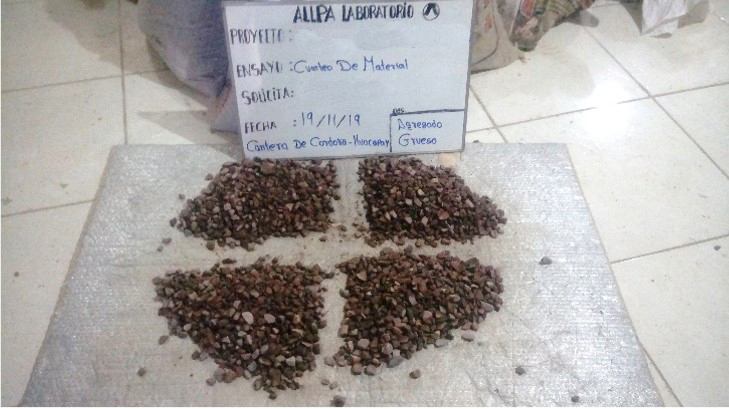 ALLPA LABORATORIO
PROYECTO :
ENSAYO : Cuarteo De Material
SOLICITA:
FECHA : 19/11/19
Cantera De Cordova-Huacapay
OBS
Agregado
Grueso